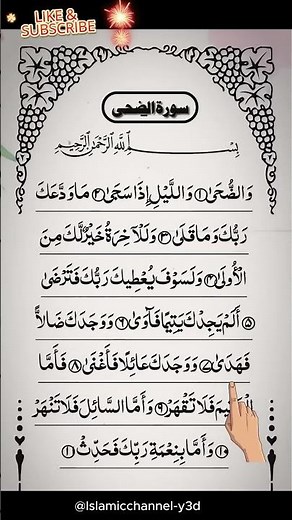 LIKE &
SUBSCRIBE
سورة الضحى
بِسْمِ اللَّهِ الرَّحْمَٰنِ الرَّحِيمِ
وَالضُّحَىٰ ١ وَاللَّيْلِ إِذَا سَجَىٰ ٢ مَا وَدَّعَكَ
رَبُّكَ وَمَا قَلَىٰ ٣ وَلَلْآخِرَةُ خَيْرٌ لَّكَ مِنَ
الْأُولَىٰ ٤ وَلَسَوْفَ يُعْطِيكَ رَبُّكَ فَتَرْضَىٰ
٥ أَلَمْ يَجِدْكَ يَتِيمًا فَآوَىٰ ٦ وَوَجَدَكَ ضَالًّا
فَهَدَىٰ ٧ وَوَجَدَكَ عَائِلًا فَأَغْنَىٰ ٨ فَأَمَّا
الْيَتِيمَ فَلَا تَقْهَرْ ٩ وَأَمَّا السَّائِلَ فَلَا تَنْهَرْ
١٠ وَأَمَّا بِنِعْمَةِ رَبِّكَ فَحَدِّثْ ١١
@Islamicchannel-y3d